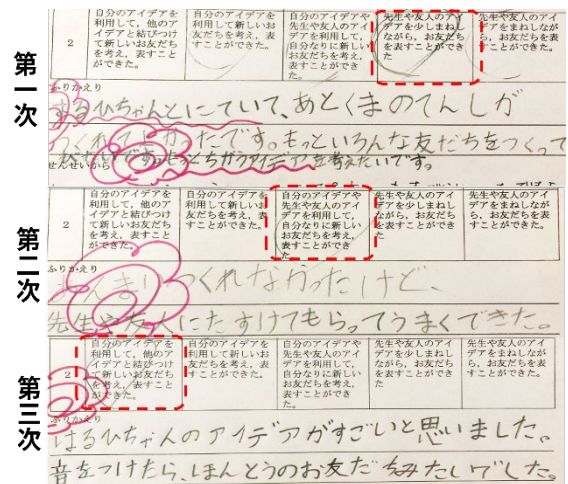 第一次
2
自分のアイデアを
利用して，他のア
イデアと結びつけ
て新しいお友だち
を考え，表すこと
ができた。
自分のアイデアを
利用して新しいお
友だちを考え，表
すことができた。
自分のアイデアや
先生や友人のアイ
デアを利用して，
自分なりに新しい
お友だちを考え，
表すことができ
た。
先生や友人のアイ
デアを少しまねし
ながら，お友だち
を表すことができ
た
先生や友人のアイ
デアをまねしなが
ら，お友だちを表
すことができた。
ふりかえり
はるひちゃんとにていて、あとくまのてんしが
つくれてよかったです。もっといろんな友だちをつくって
せんせいから
第二次
2
自分のアイデアを
利用して，他のア
イデアと結びつけ
て新しいお友だち
を考え，表すこと
ができた。
自分のアイデアを
利用して新しいお
友だちを考え，表
すことができた。
自分のアイデアや
先生や友人のアイ
デアを利用して，
自分なりに新しい
お友だちを考え，
表すことができ
た
先生や友人のアイ
デアを少しまねし
ながら，お友だち
を表すことができ
た
先生や友人のアイ
デアをまねしなが
ら，お友だちを表
すことができた。
ふりかえり
あんまりつくれなかったけど、
先生や友人にたすけてもらってうまくできた。
第三次
2
自分のアイデアを
利用して，他のア
イデアと結びつけ
て新しいお友だち
を考え，表すこと
ができた。
自分のアイデアを
利用して新しいお
友だちを考え，表
すことができた。
自分のアイデアや
先生や友人のアイ
デアを利用して，
自分なりに新しい
お友だちを考え，
表すことができ
た。
先生や友人のアイ
デアを少しまねし
ながら，お友だち
を表すことができ
た
先生や友人のアイ
デアをまねしなが
ら，お友だちを表
すことができた。
ふりかえり
はるひちゃんのアイデアがすごいと思いました。
音をつけたら、ほんとうのお友だちみたいでした。